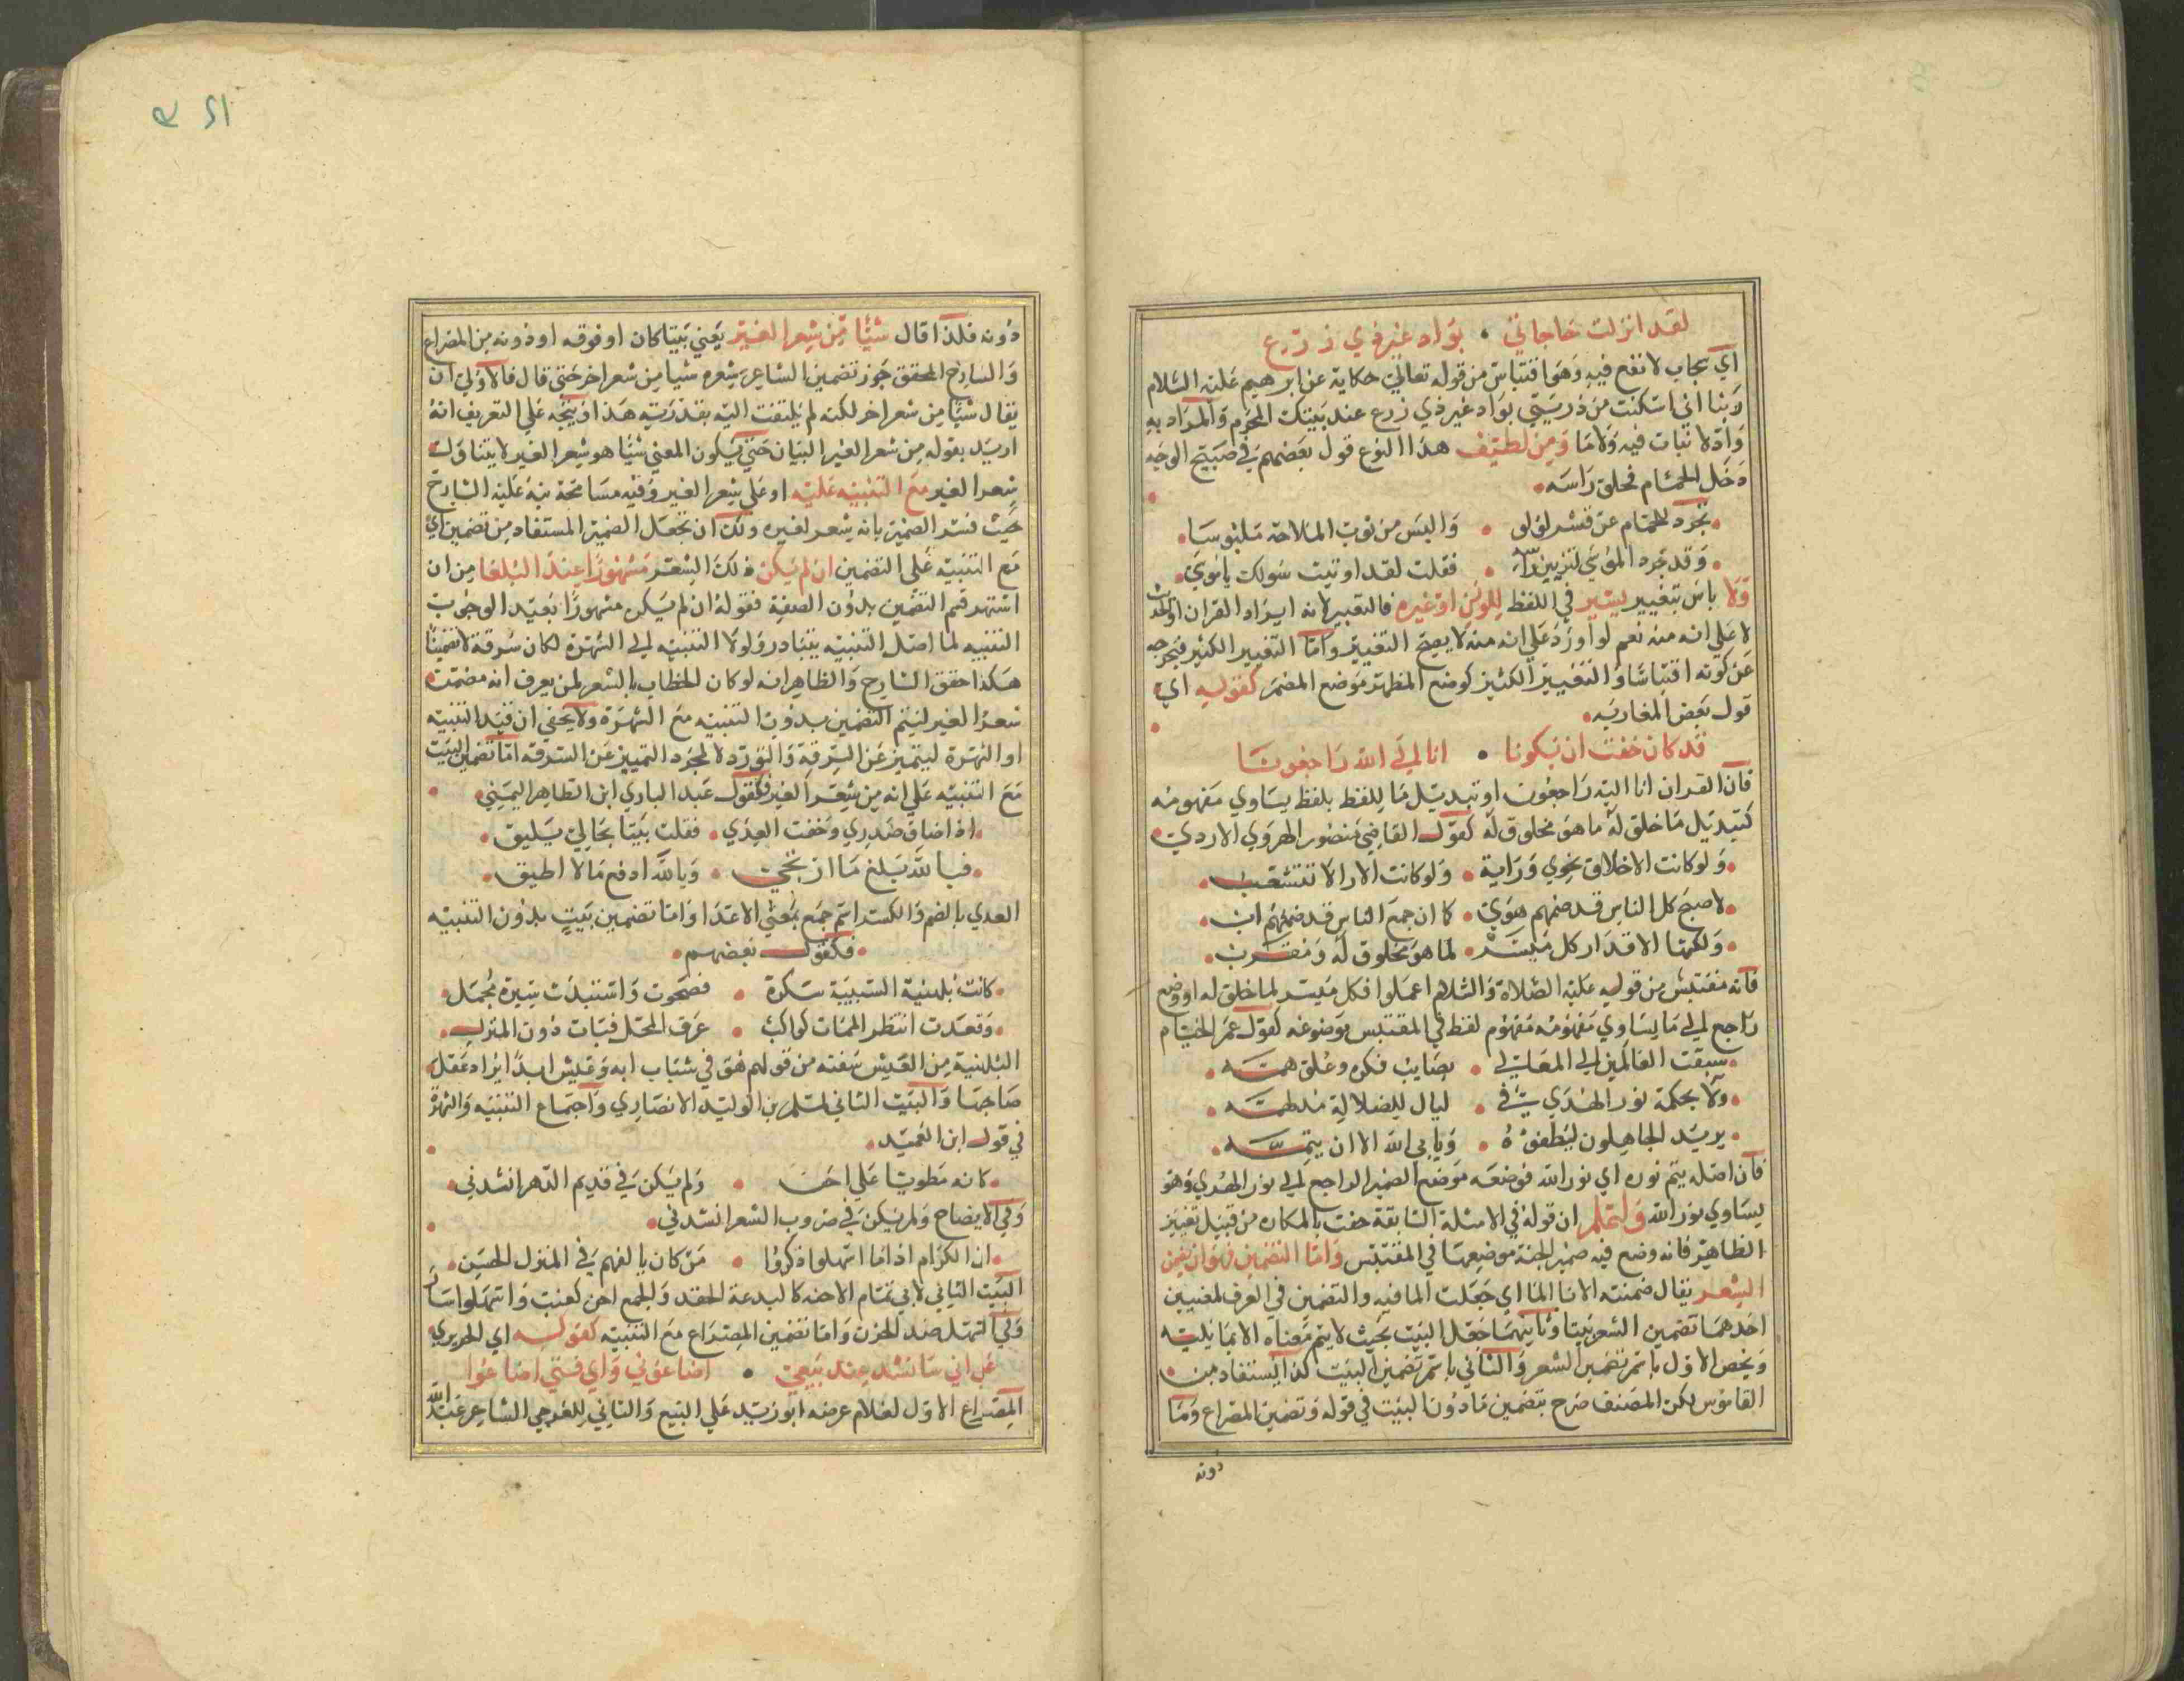 لقد انزلت حاجاتي • بواد غير ذي زرع
اي بجاب لا نفع فيه وهو اقتباس من قوله تعالى حكاية عن ابرهيم عليه السلام
ربنا اني اسكنت من ذريتي بواد غير ذي زرع عند بيتك المحرم والمراد به
واد لا نبات فيه ولا ما ومن لطيف هذا النوع قول بعضهم في صبيح الوجه
دخل الحمام فحلق راسه •
• تجرد للحمام عن قشر لؤلؤ • والبس من ثوب الملاحة ملبوسا •
• وقد تجرد الموسى لتزيين راسه • فقلت لقد اوتيت سولك يا موسى •
ولا باس بتغيير يسير في اللفظ للوزن او غيره فالتعبير لانه ايراد القران او الحديث
لا على انه منه نعم لو اورد على انه منه لا يصح التغيير واما التغيير الكثير فيخرجه
عن كونه اقتباسا والتغيير الكثير كوضع المظهر موضع المضمر كقوله اي
قول بعض المغاربه •
قد كان خفت ان يكونا • انا الى الله راجعونا
فان القران انا اليه راجعون او تبديل ما للفظ بلفظ يساوي مفهومه
كتبديل ما خلق له ما هو مخلوق له كقول القاضي منصور الهروي الازدي
• ولو كانت الاخلاق تحوى وراية • ولو كانت الارا لا تتشعب •
• لاصبح كل الناس قد ضمهم هوى • كما ان جمع الناس قد ضمهم اب •
• ولكنها الاقدار كل ميسر • لما هو مخلوق له ومقرب •
فانه مقتبس من قوله عليه الصلاة والسلام اعملوا فكل ميسر لما خلق له او وضع
راجع الى ما يساوي مفهومه مفهوم لفظ في المقتبس موضوعه كقول عمر الخيام
• سبقت العالمين الى المعالي • بصايب فكرة وعلو همته •
• ولاح بحكمة نور الهدى في • ليال للضلالة مدلهمته •
• يريد الجاهلون ليطفؤه • ويابى الله الا ان يتمه •
فان اصله يتم نوره اي نور الله فوضعه موضع الضمير الراجع الى نور الهدى وهو
يساوي نور الله ولتعلم ان قوله في الامثلة السابقة حفت بالمكاره من قبيل تغيير
الظاهر فانه وضع فيه ضمير الجنة موضعها في المقتبس واما التضمين فهو ان يضمن
الشعر يقال ضمنته الانا الما اي جعلت الما فيه والتضمين في العرف لمعنيين
احدهما تضمين الشعر بيتا وثانيهما جعل البيت بحيث لا يتم معناه الا بما يليه
ويخص الاول باسم تضمين الشعر والثاني باسم تضمين البيت كذا يستفاد من
القاموس لكن المصنف صرح بتضمين ما دون البيت في قوله وتضمين المصراع وما
دونه
دونه فلذا قال شيئا من شعر الغير يعني بيتا كان او فوقه او دونه من المصراع
والشارح المحقق جوز تضمين الشاعر شعره شيا من شعر اخر حتى قال فالاولى ان
يقال شيئا من شعر اخر لكنه لم يلتفت اليه بقدرته هذا ويتجه على التعريف انه
اريد بقوله من شعر الغير البيان حتى يكون المعنى شيئا هو شعر الغير لا يتناول
شعر الغير مع التنبيه عليه او على شعر الغير وفيه مسامحة نبه عليه الشارح
حيث فسر الضمير بانه شعر لغيره ولك ان تجعل الضمير المستفاد من تضمين اي
مع التنبيه على التضمين ان لم يكن ذلك الشعر مشهورا عند البلغا من ان
اشتهر قسم التضمين بدون الصفة فقوله ان لم يكن مشهورا بقيد الوجوب
التنبيه لما اصل التنبيه يتبادر ولولا التنبيه الى الشهرة لكان سرقة لا تضمينا
هكذا حقق الشارح والظاهر انه لو كان الخطاب بالشعر لمن يعرف انه مضمنة
شعر الغير ليتم التضمين بدون التنبيه مع الشهرة ولا يخفى ان قيد التنبيه
او الشهرة ليتميز عن السرقة والتورد لا لمجرد التمييز عن السرقه اما تضمين البيت
مع التنبيه على انه من شعر الغير فكقول عبد الباري ابن الطاهر اليميني •
• اذا ضاق صدري وخفت العدى • فقلت بيتا بحالي يليق •
• فبالله يبلغ ما ارتجي • وبالله ادفع ما لا اطيق •
العدي بالضم والكسر اسم جمع بمعنى الاعدا واما تضمين بيت بدون التنبيه
• فكقول بعضهم •
• كانت بلهنية الشبيبة سكرة • فصحوت واستبدلت سيرة مجمل •
• وقعدت انتظر الممات كراكب • عرف المحل فبات دون المنزل •
البلهنية من العيش سعته من قولهم هو في شباب ابله وعيش ابله اذا يراد غفل
صاحبها والبيت الثاني لمسلم بن الوليد الانصاري واجتماع التنبيه والشهرة
في قول ابن العميد •
• كانه مطويا على احن • ولم يكن في قديم الدهر انشدني •
وفي الايضاح ولم يكن في ضروب الشعر انشدني •
• ان الكرام اذا ما اسهلوا ذكروا • من كان يالفهم في المنزل الخشن •
البيت الثاني لابي تمام الاحنه كالبدعة الحقد والجمع احن كعنب واسهلوا ساروا
في السهل ضد الحزن واما تضمين المصراع مع التنبيه كقوله اي الحريري
على اني سانشد عند بيعي • اضاعوني واي فتى اضاعوا
المصراع الاول لغلام عرضه ابو زيد على البيع والثاني للعرجي الشاعر عبد الله